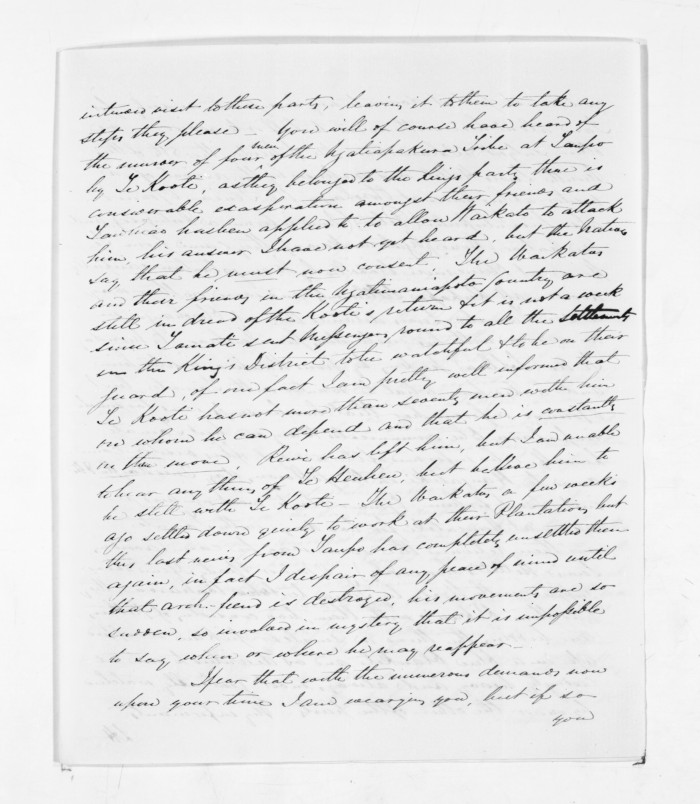 intended visit to these parts, leaving it to them to take any
steps they please – You will of course have heard of
the murder of four men of the Ngatiapakura Tribe at Taupo
by Te Kooti, as they belonged to the Kings party there is
considerable exasperation amongst their friends and
Tawhiao has been applied to to allow Waikato to attack
him, his answer I have not yet heard, but the Natives
say that he must now consent. The Waikatos
and their friends in the Ngatimaniapoto Country are
still in dread of the Kooti's return & it is not a week
since Tamati sent Messengers round to all the Settlements
in the King's District to be watchful & to be on their
guard, of one fact I am pretty well informed that
Te Kooti has not more than seventy men with him
on whom he can depend and that he is constantly
on the move. Rewi has left him, but I am unable
to hear any thing of Te Heuheu, but believe him to
be still with Te Kooti – The Waikatos a few weeks
ago settled down quietly to work at their Plantations, but
this last news from Taupo has completely unsettled them
again, in fact I despair of any peace of mind until
that arch-fiend is destroyed, his movements are so
sudden, so involved in mystery that it is impossible
to say when or where he may reappear –
I fear that with the numerous demands now
upon your time I am wearying you, but if so
you